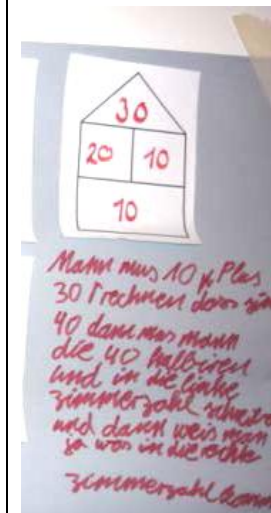 30
20 10
10
Mann mus 10 Plus
30 rechnen dass sin
40 dann mus mann
die 40 halbiren
und in die linke
zimmerzahl schreib
und dann weis man
ja was in die rechte
zimmerzahl kom